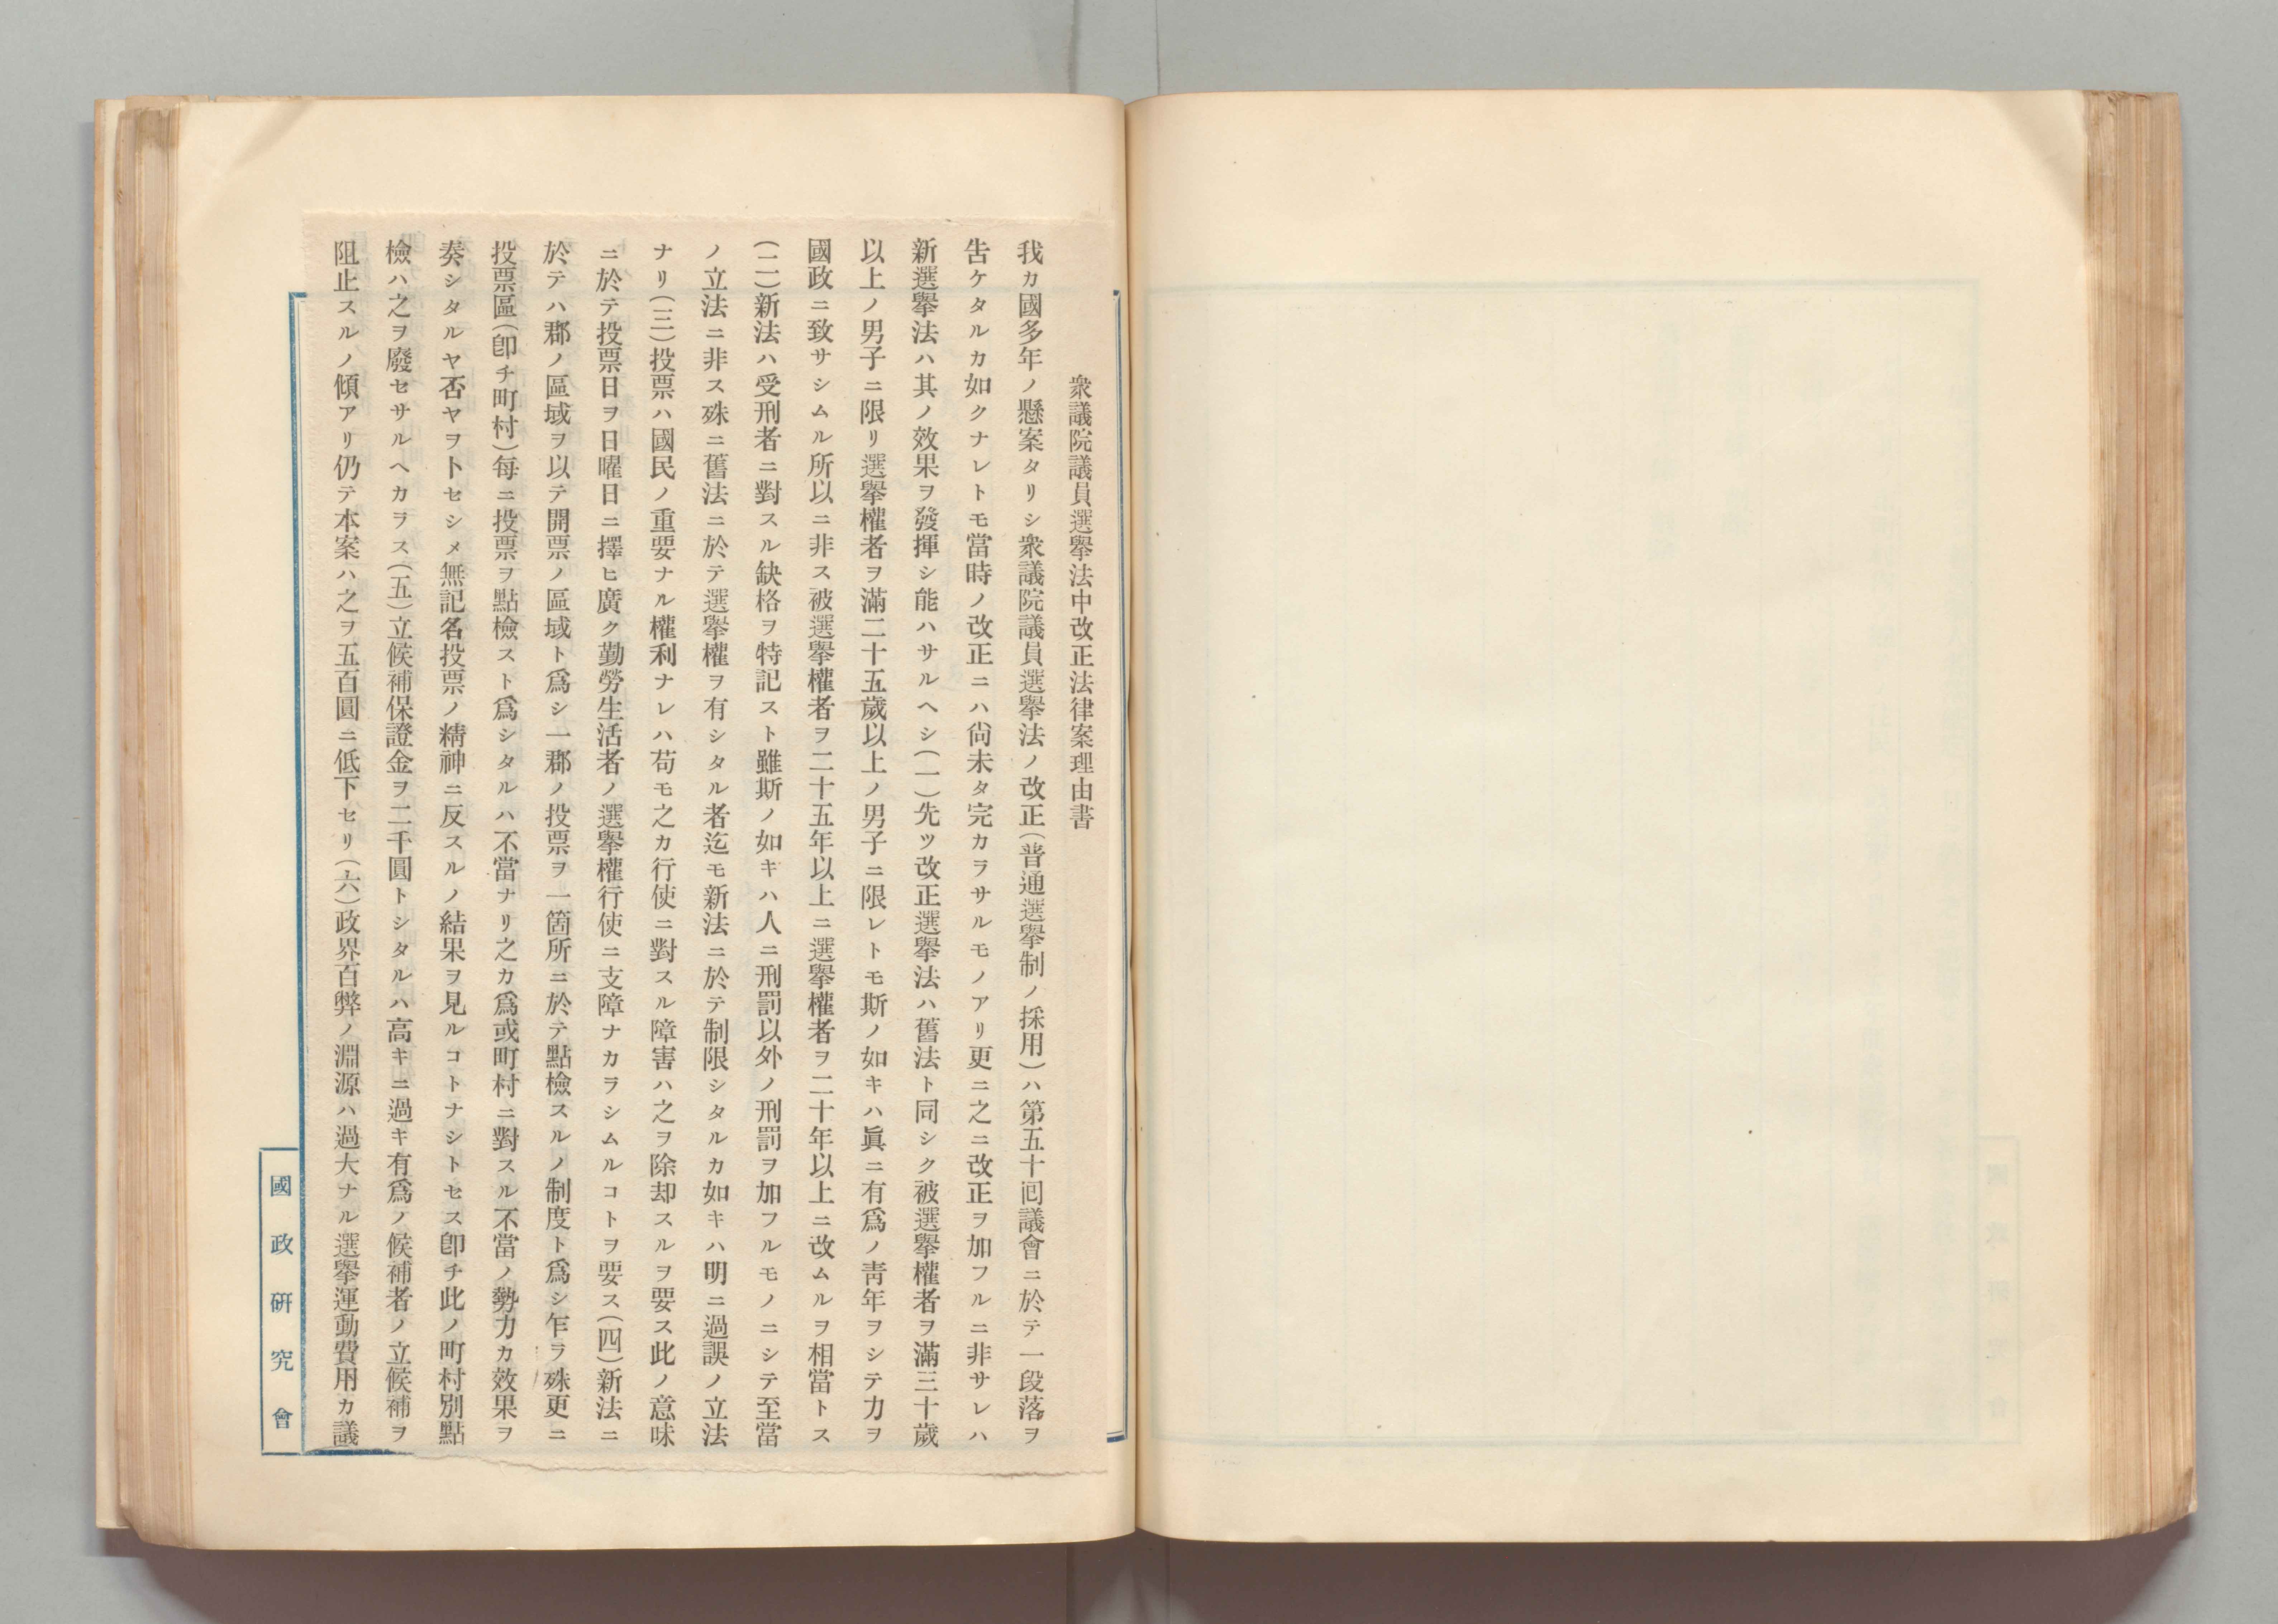 衆議院議員選擧法中改正法律案理由書
我カ國多年ノ懸案タリシ衆議院議員選擧法ノ改正(普通選擧制ノ採用)ハ第五十囘議會ニ於テ一段落ヲ
吿ケタルカ如クナレトモ當時ノ改正ニハ尙未タ完カラサルモノアリ更ニ之ニ改正ヲ加フルニ非サレハ
新選擧法ハ其ノ效果ヲ發揮シ能ハサルヘシ(一)先ツ改正選擧法ハ舊法ト同シク被選擧權者ヲ滿三十歲
以上ノ男子ニ限リ選擧權者ヲ滿二十五歲以上ノ男子ニ限レトモ斯ノ如キハ眞ニ有爲ノ靑年ヲシテ力ヲ
國政ニ致サシムル所以ニ非ス被選擧權者ヲ二十五年以上ニ選擧權者ヲ二十年以上ニ改ムルヲ相當トス
(二)新法ハ受刑者ニ對スル缺格ヲ特記スト雖斯ノ如キハ人ニ刑罰以外ノ刑罰ヲ加フルモノニシテ至當
ノ立法ニ非ス殊ニ舊法ニ於テ選擧權ヲ有シタル者迄モ新法ニ於テ制限シタルカ如キハ明ニ過誤ノ立法
ナリ(三)投票ハ國民ノ重要ナル權利ナレハ苟モ之カ行使ニ對スル障害ハ之ヲ除却スルヲ要ス此ノ意味
ニ於テ投票日ヲ日曜日ニ擇ヒ廣ク勤勞生活者ノ選擧權行使ニ支障ナカラシムルコトヲ要ス(四)新法ニ
於テハ郡ノ區域ヲ以テ開票ノ區域ト爲シ一郡ノ投票ヲ一箇所ニ於テ點檢スルノ制度ト爲シ乍ラ殊更ニ
投票區(卽チ町村)每ニ投票ヲ點檢スト爲シタルハ不當ナリ之カ爲或町村ニ對スル不當ノ勢力カ效果ヲ
奏シタルヤ否ヤヲトセシメ無記名投票ノ精神ニ反スルノ結果ヲ見ルコトナシトセス卽チ此ノ町村別點
檢ハ之ヲ廢セサルヘカラス(五)立候補保證金ヲ二千圓トシタルハ高キニ過キ有爲ノ候補者ノ立候補ヲ
阻止スルノ傾アリ仍テ本案ハ之ヲ五百圓ニ低下セリ(六)政界百弊ノ淵源ハ過大ナル選擧運動費用カ議
國政硏究會